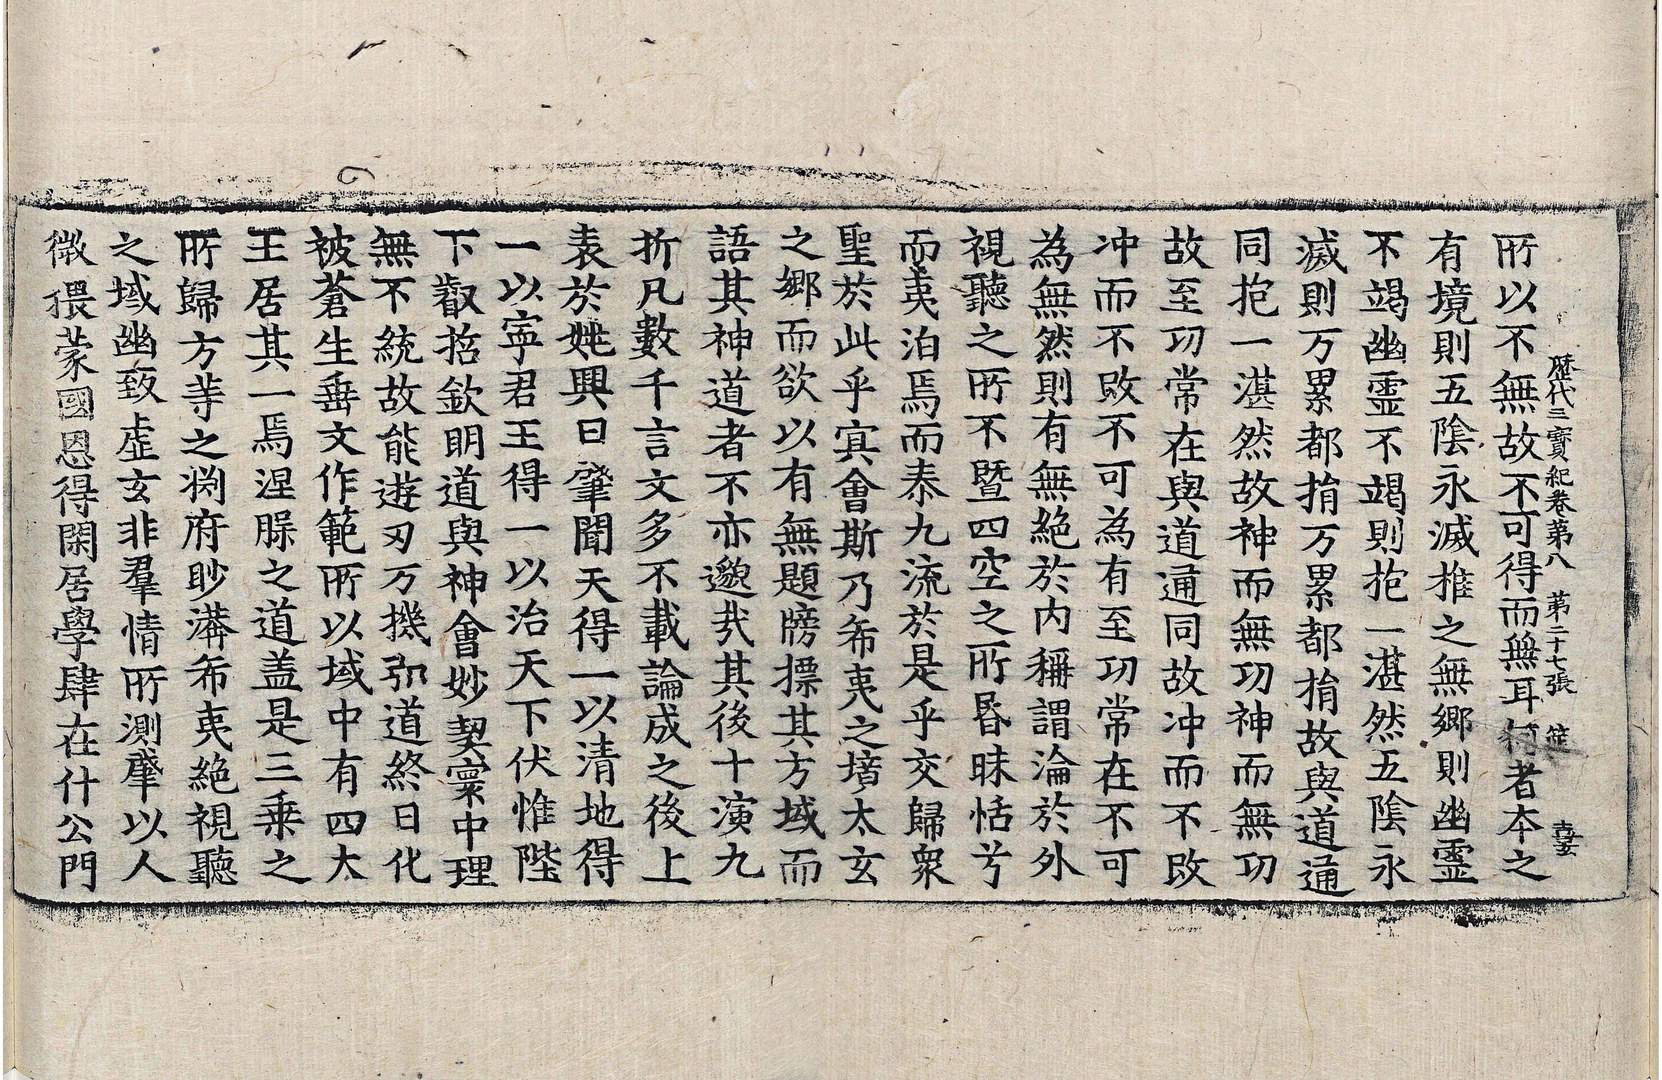 歷代三寶紀卷第八 第二十七張 笙 
所以不無故不可得而無耳何者本之
有境則五陰永滅推之無鄉則幽靈
不竭幽靈不竭則抱一湛然五陰永
滅則万累都捐万累都捐故與道通
同抱一湛然故神而無功神而無功
故至功常在與道通同故冲而不改
冲而不改不可為有至功常在不可
為無然則有無絕於内稱謂淪於外
視聽之所不暨四空之所昬昧恬兮
而夷泊焉而泰九流於是乎交歸衆
聖於此乎㝠會斯乃希夷之境太玄
之鄉而欲以有無題牓摽其方域而
語其神道者不亦邈㢤其後十演九
折凡數千言文多不載論成之後上
表於姚興曰肇聞天得一以清地得
一以寜君王得一以治天下伏惟陛
下叡哲欽明道與神會妙契寰中理
無不統故能遊刃万機弘道終日化
被蒼生垂文作範所以域中有四大
王居其一焉涅槃之道盖是三乗之
所歸方等之渕府眇漭希夷絕視聽
之域幽致虛玄非羣情所測肇以人
微猥蒙國恩得閑居學肆在什公門